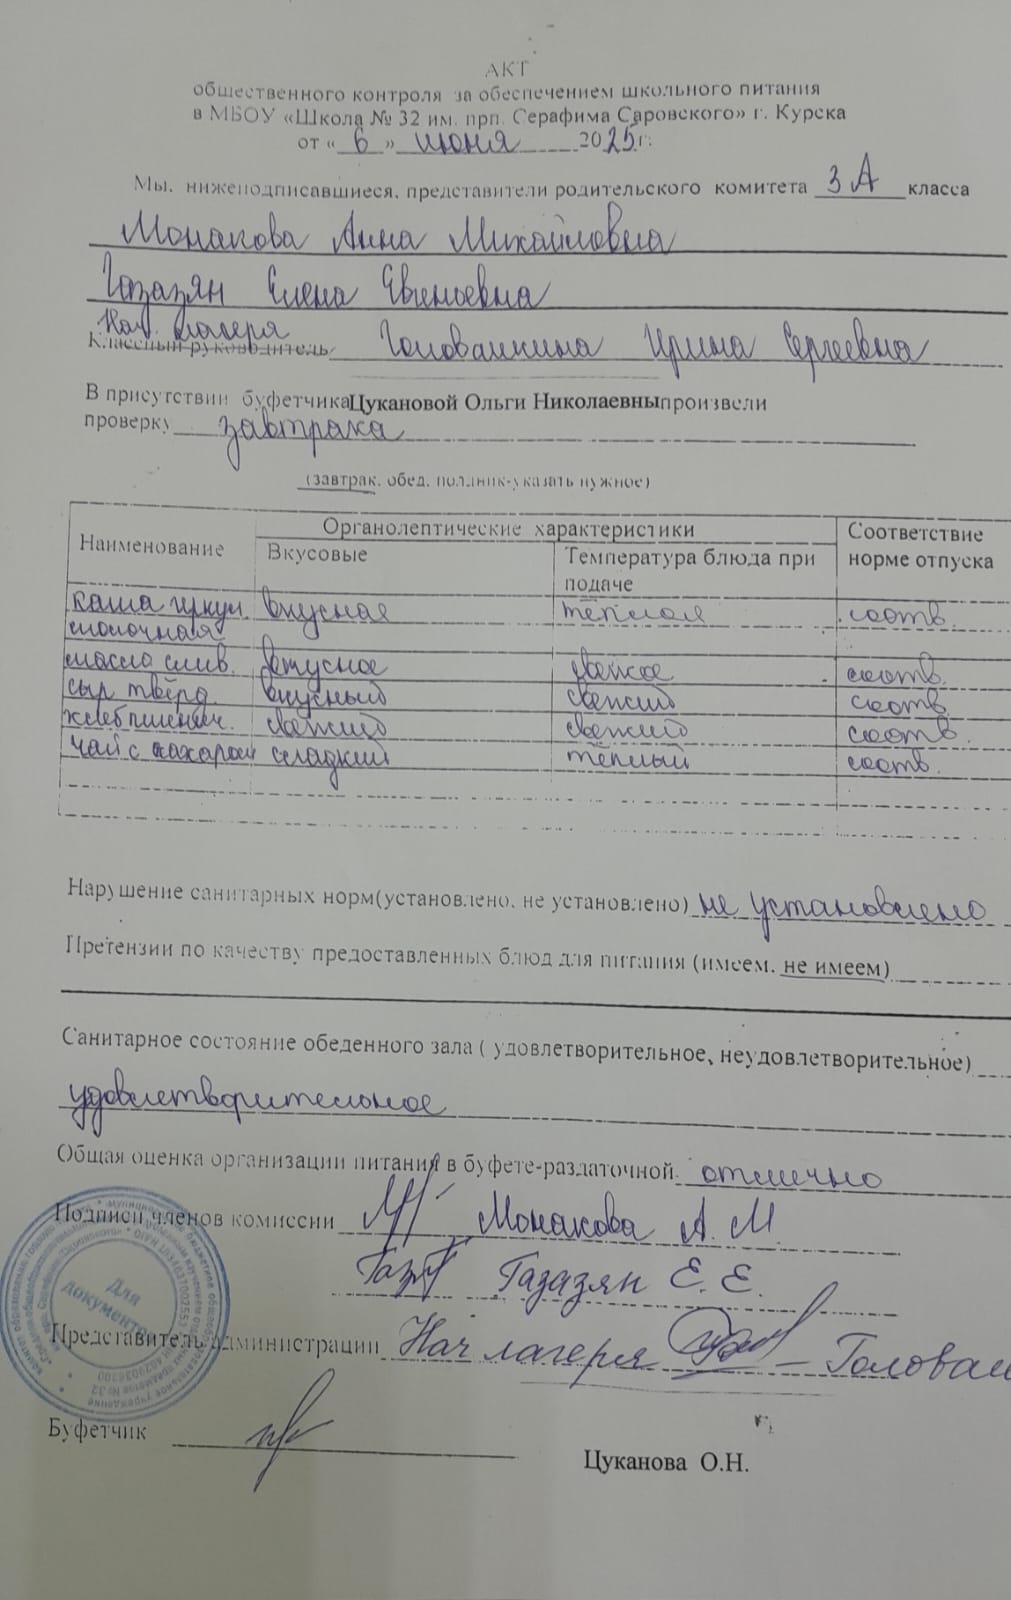 АКТ
общественного контроля за обеспечением школьного питания
в МБОУ «Школа № 32 им. прп. Серафима Саровского» г. Курска
от «6» июня 2025г.
Мы, нижеподписавшиеся, представители родительского комитета 3 А класса
Монакова Анна Михайловна
Газазян Елена Евгеньевна
Нач. лагеря
Классный руководитель Головашкина Ирина Сергеевна
В присутствии буфетчика Цукановой Ольги Николаевны произвели
проверку завтрака
(завтрак, обед, полдник-указать нужное)
Наименование Органолептические характеристики Соответствие норме отпуска
Вкусовые Температура блюда при подаче
каша геркул. молочная вкусная теплая соотв.
масло слив. вкусное свежее соотв.
сыр твёрд. вкусный свежий соотв.
хлеб пшенич. свежий свежий соотв.
чай с сахаром сладкий тёплый соотв.
Нарушение санитарных норм(установлено, не установлено) не установлено
Претензии по качеству предоставленных блюд для питания (имеем, не имеем)
Санитарное состояние обеденного зала ( удовлетворительное, неудовлетворительное)
удовлетворительное
Общая оценка организации питания в буфете-раздаточной. отлично
Подписи членов комиссии Монакова А. М.
Газазян Е. Е.
Представитель администрации Нач лагеря – Головаш
Для
документов
Буфетчик
Цуканова О.Н.